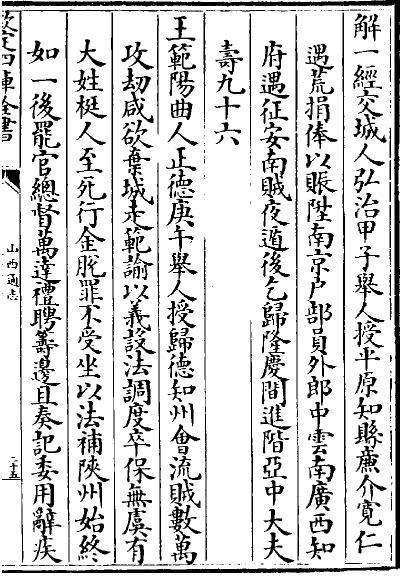 解一經交城人弘治甲子舉人授平原知縣廉介寬仁
遇荒捐俸以賑陞南京户部員外郎中雲南廣西知
府遇征安南賊夜遁後乞歸隆慶間進階亞中大夫
壽九十六
王範陽曲人正德庚午舉人授歸德知州會流賊數萬
攻劫咸欲棄城走範諭以義設法調度卒保無虞有
大姓梃人至死行金脫罪不受坐以法補陝州始終
如一後罷官總督萬達禮聘籌邊且奏記委用辭疾
欽定四庫全書
山西通志
二十五